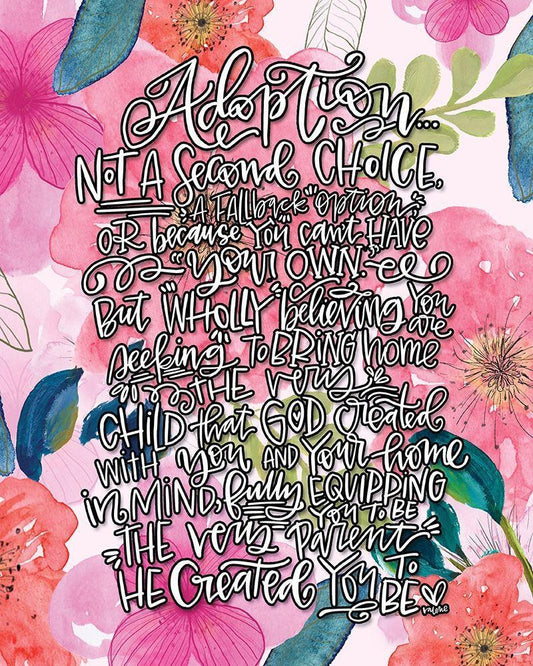 Adoption...
NOT A Second CHOICE,
A FALLback "option,"
OR because You can't HAVE
"your OWN."
But "WHOLLY" believing You are
"seeking" TO BRING home
THE very
CHILD that GOD created
WITH you AND Your home
in MIND, fully EQUIPPING
YOU TO BE
THE very parent
HE Created You TO
BE